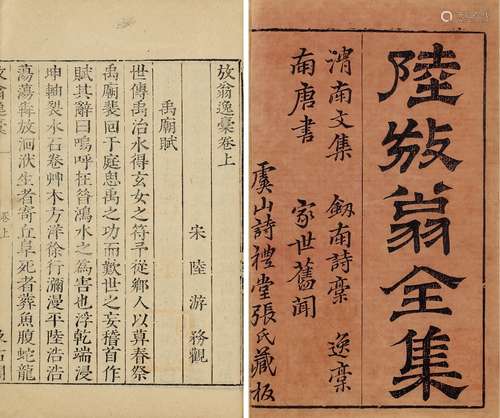 陸放翁全集
渭南文集　劔南詩稾　逸稾
南唐書　家世舊聞
虞山詩禮堂張氏藏板
放翁逸稾卷上
宋　陸　游　務觀
禹廟賦
世傳禹治水得玄女之符予從鄉人以暮春祭
禹廟裴回于庭思禹之功而歎世之妄稽首作
賦其辭曰嗚呼在昔鴻水之為害也浮乾端浸
坤軸裂水石卷艸木方洋徐行瀰漫平陸浩浩
蕩蕩犇放洄洑生者寄丘阜死者葬魚腹蛇龍
放翁逸稾
卷上